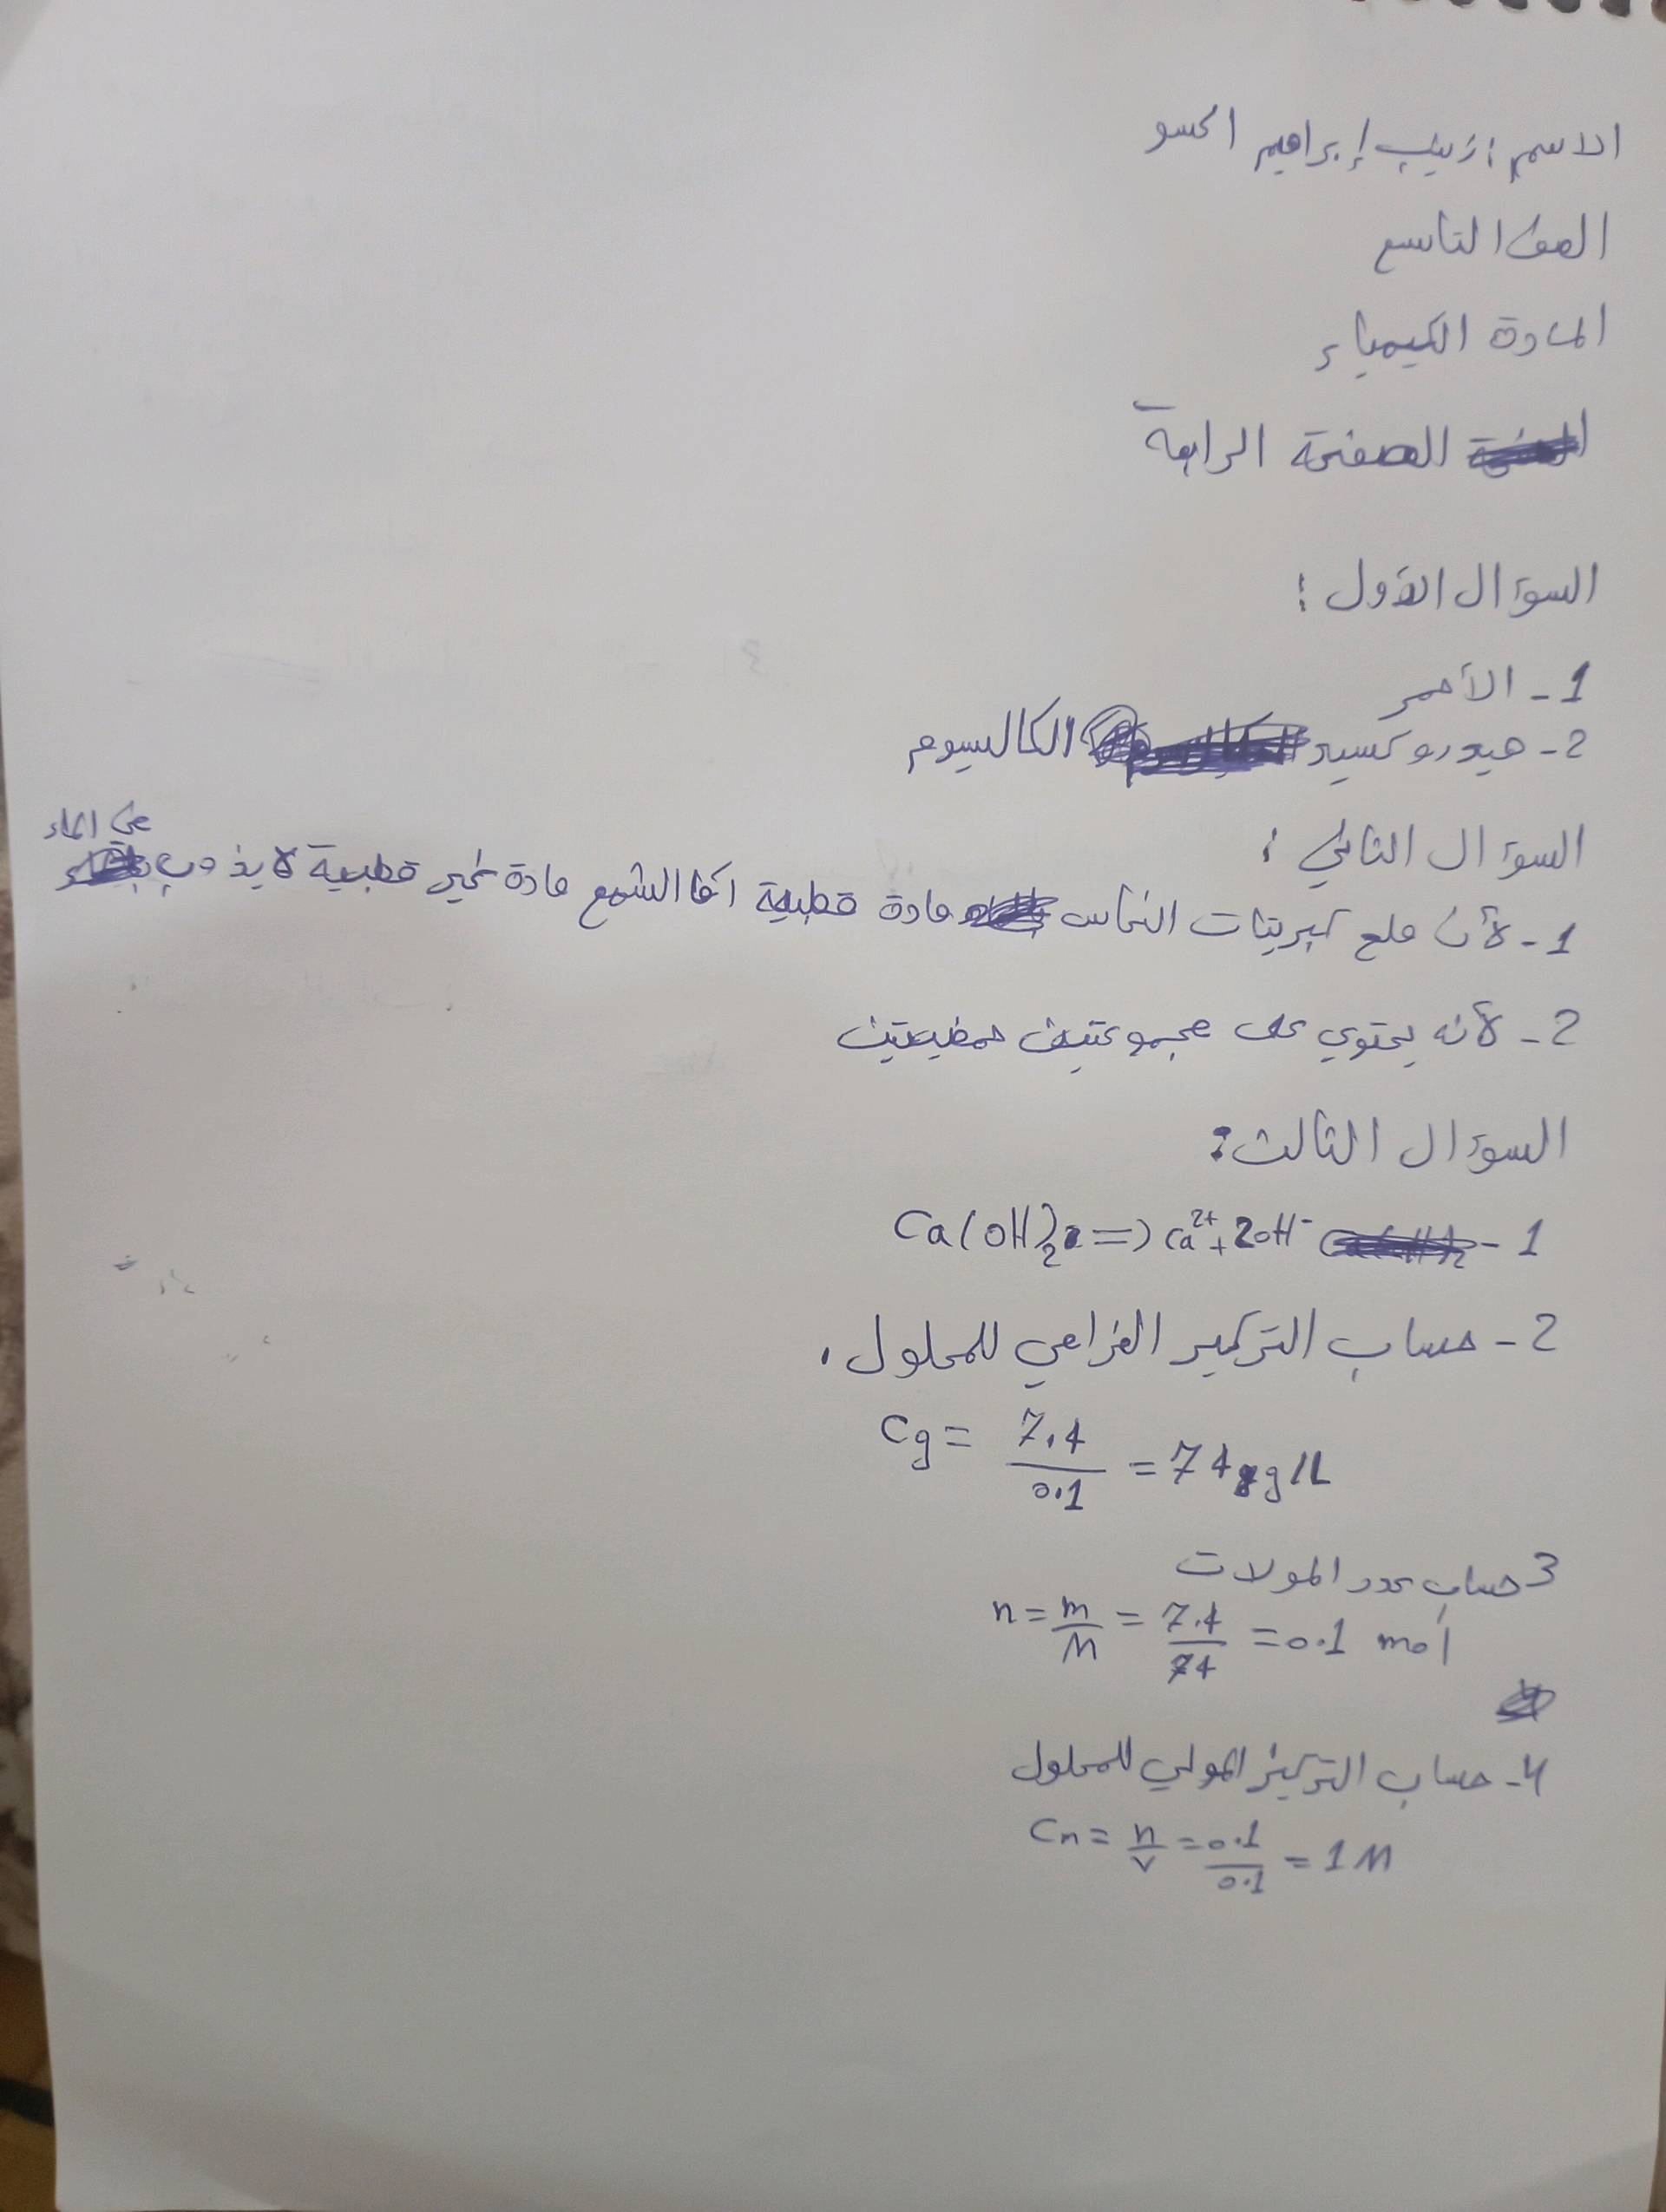 الاسم: زينب إبراهيم الحسو
الصف التاسع
المادة الكيمياء
الصفحة الرابعة
السؤال الأول:
1- الأحمر
2- هيدروكسيد الكالسيوم
السؤال الثاني:
1- لأن ملح كبريتات النحاس مادة قطبية اما الشمع مادة غير قطبية لا يذوب في الماء
2- لأنه يحتوي على مجموعتين حمضيتين
السؤال الثالث:
1- Ca(OH)2 => Ca2+ + 2OH-
2- حساب التركيز الغرامي للمحلول.
Cg = 7.4 / 0.1 = 74 g/L
3 حساب عدد المولات
n = m / M = 7.4 / 74 = 0.1 mol
4- حساب التركيز المولي للمحلول
Cn = n / v = 0.1 / 0.1 = 1 M